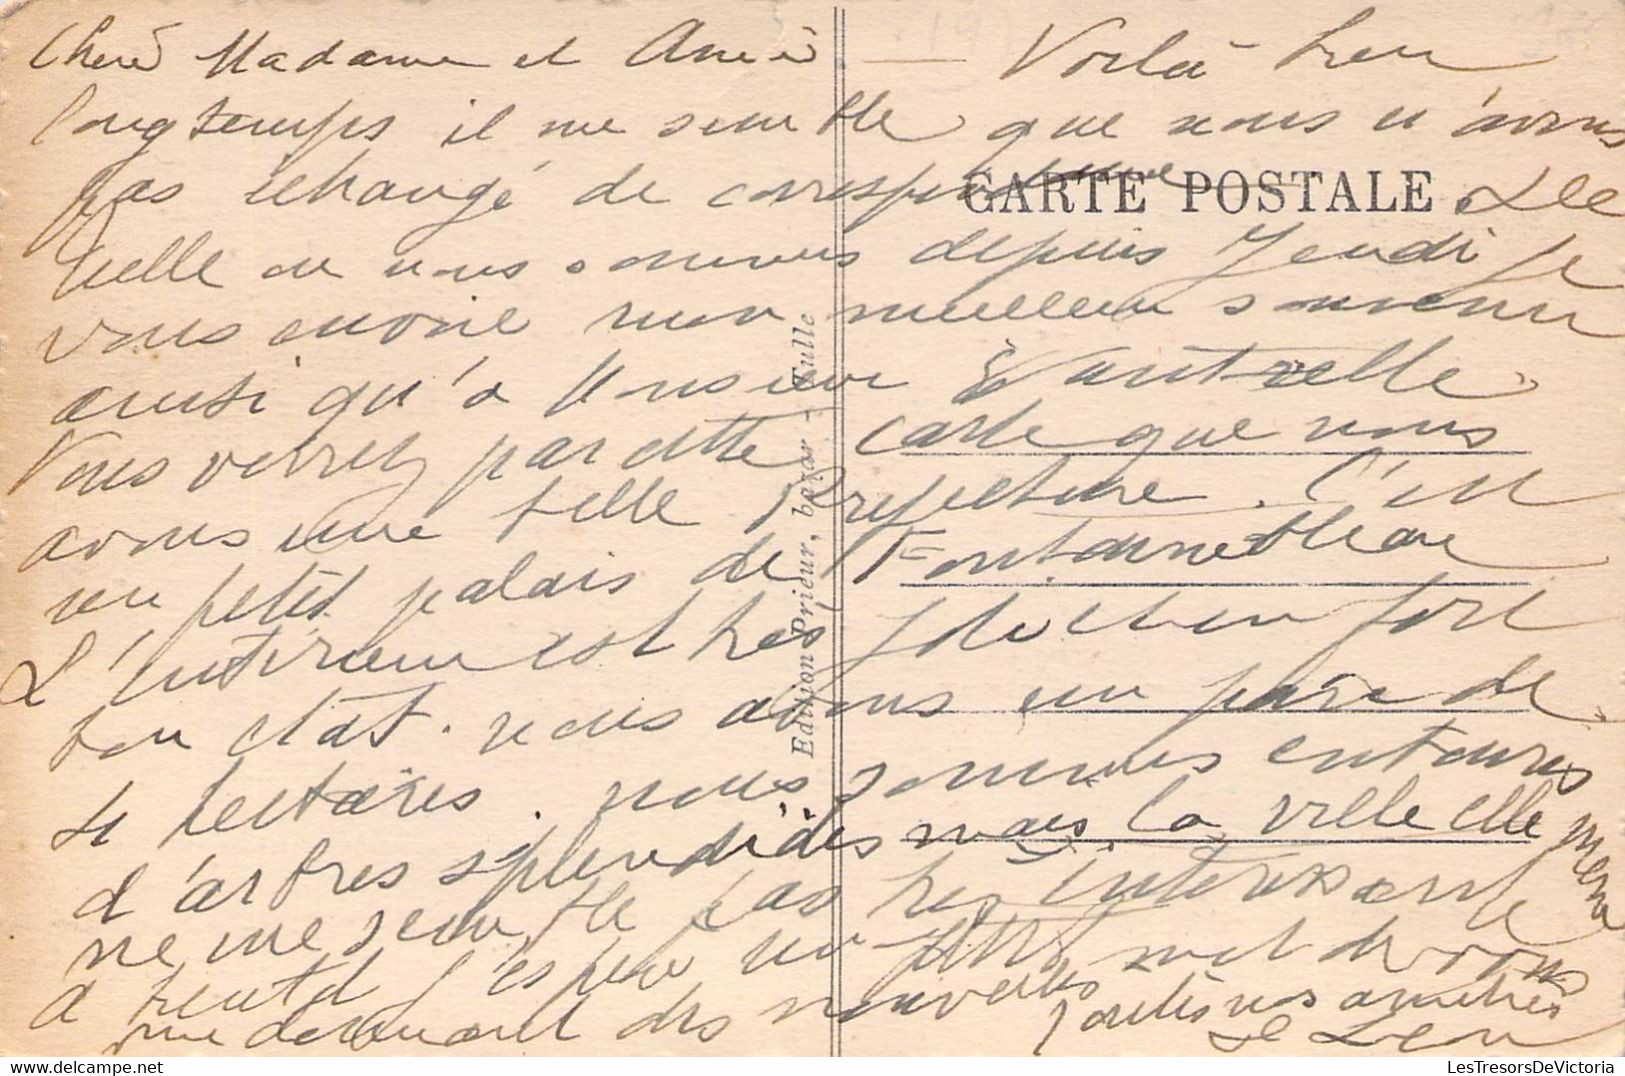 Chère Madame et Amie Voilà bien
longtemps il me semble que nous n'avons
pas échangé de correspondance
CARTE POSTALE
Tulle ou nous sommes depuis Jeudi je
vous envoie mon meilleur souvenir
ainsi qu'à Monsieur
Vous verrez par cette carte que nous
avons une belle Prefecture. C'est
un petit palais de Fontainebleau
L'interieur est très et en fort
bon état. nous avons un parc de
4 hectares. nous sommes entourés
d'arbres splendides mais la ville elle
ne me semble pas très interessante
a bientot j'espère un petit mot de vous
me donnant des nouvelles
toutes nos amitiés
Edition Prieur, bazar - Tulle
LesTresorsDeVictoria